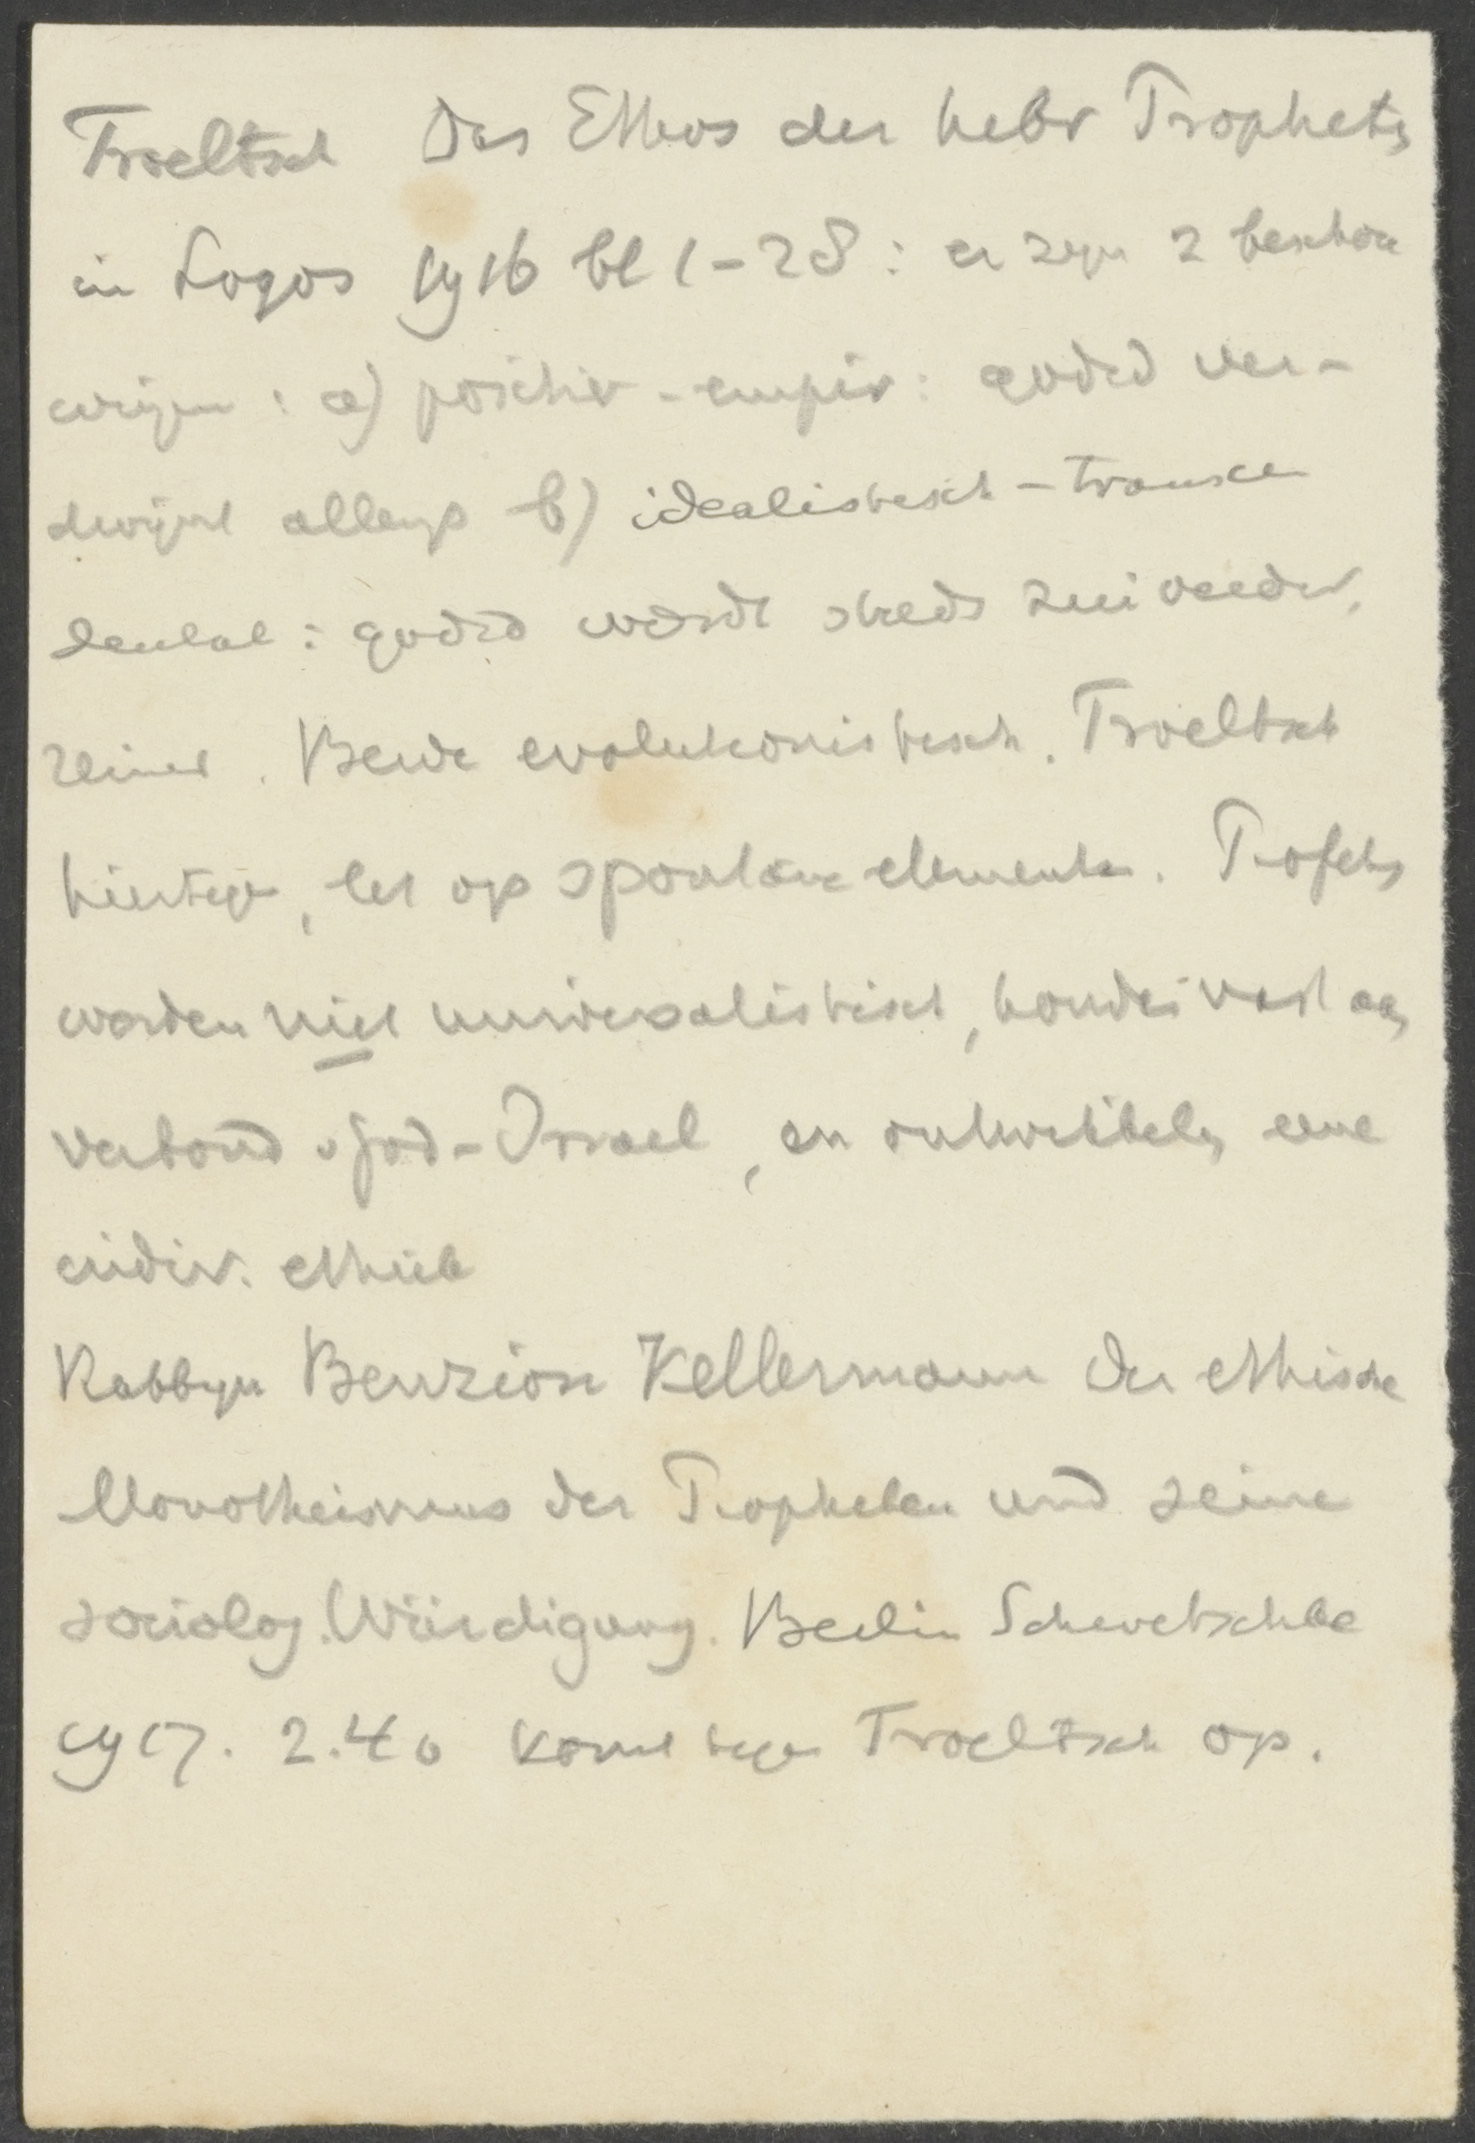 Troeltsch Das Ethos der hebr Propheten
in Logos 1916 bl 1-28: er zijn 2 beschou
wingen: a) positiv-empir: godsd ver-
dwijnt allengs b) idealistisch-transcen
dental: godsd wordt steeds zuiverder,
reiner. Beide evolutionistisch. Troeltsch
hiertegen, let op spontane elementen. Profeten
worden niet universalistisch, houden vast aan
verbond v God-Israel, en ontwikkelen eene
individ. ethiek
Rabbijn Benzion Kellermann Der ethische
Monotheismus der Propheten und seine
soziolog. Würdigung. Berlin Schwetschke
1917. 2.40 komt tegen Troeltsch op.